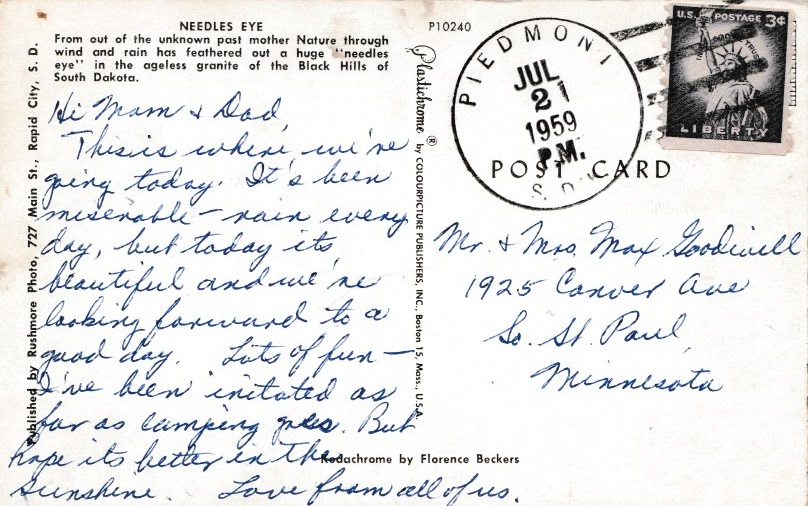 NEEDLES EYE
From out of the unknown past mother Nature through
wind and rain has feathered out a huge "needles
eye" in the ageless granite of the Black Hills of
South Dakota.
Hi Mom & Dad,
This is where we're
going today. It's been
miserable – rain every
day, but today its
beautiful and we're
looking forward to a
good day. Lots of fun –
I've been initated as
far as camping goes. But
hope its better in the
sunshine. Love from all of us.
Published by Rushmore Photo, 727 Main St., Rapid City, S. D.
P10240
Plastichrome ® by COLOURPICTURE PUBLISHERS, INC., Boston 15, Mass., U.S.A.
PIEDMONT
JUL
21
1959
P.M.
S. D.
U.S. POSTAGE 3¢
IN GOD WE TRUST
LIBERTY
POST CARD
Mr. & Mrs. Max Goodwill
1925 Conver Ave
So. St. Paul,
Minnesota
Kodachrome by Florence Beckers